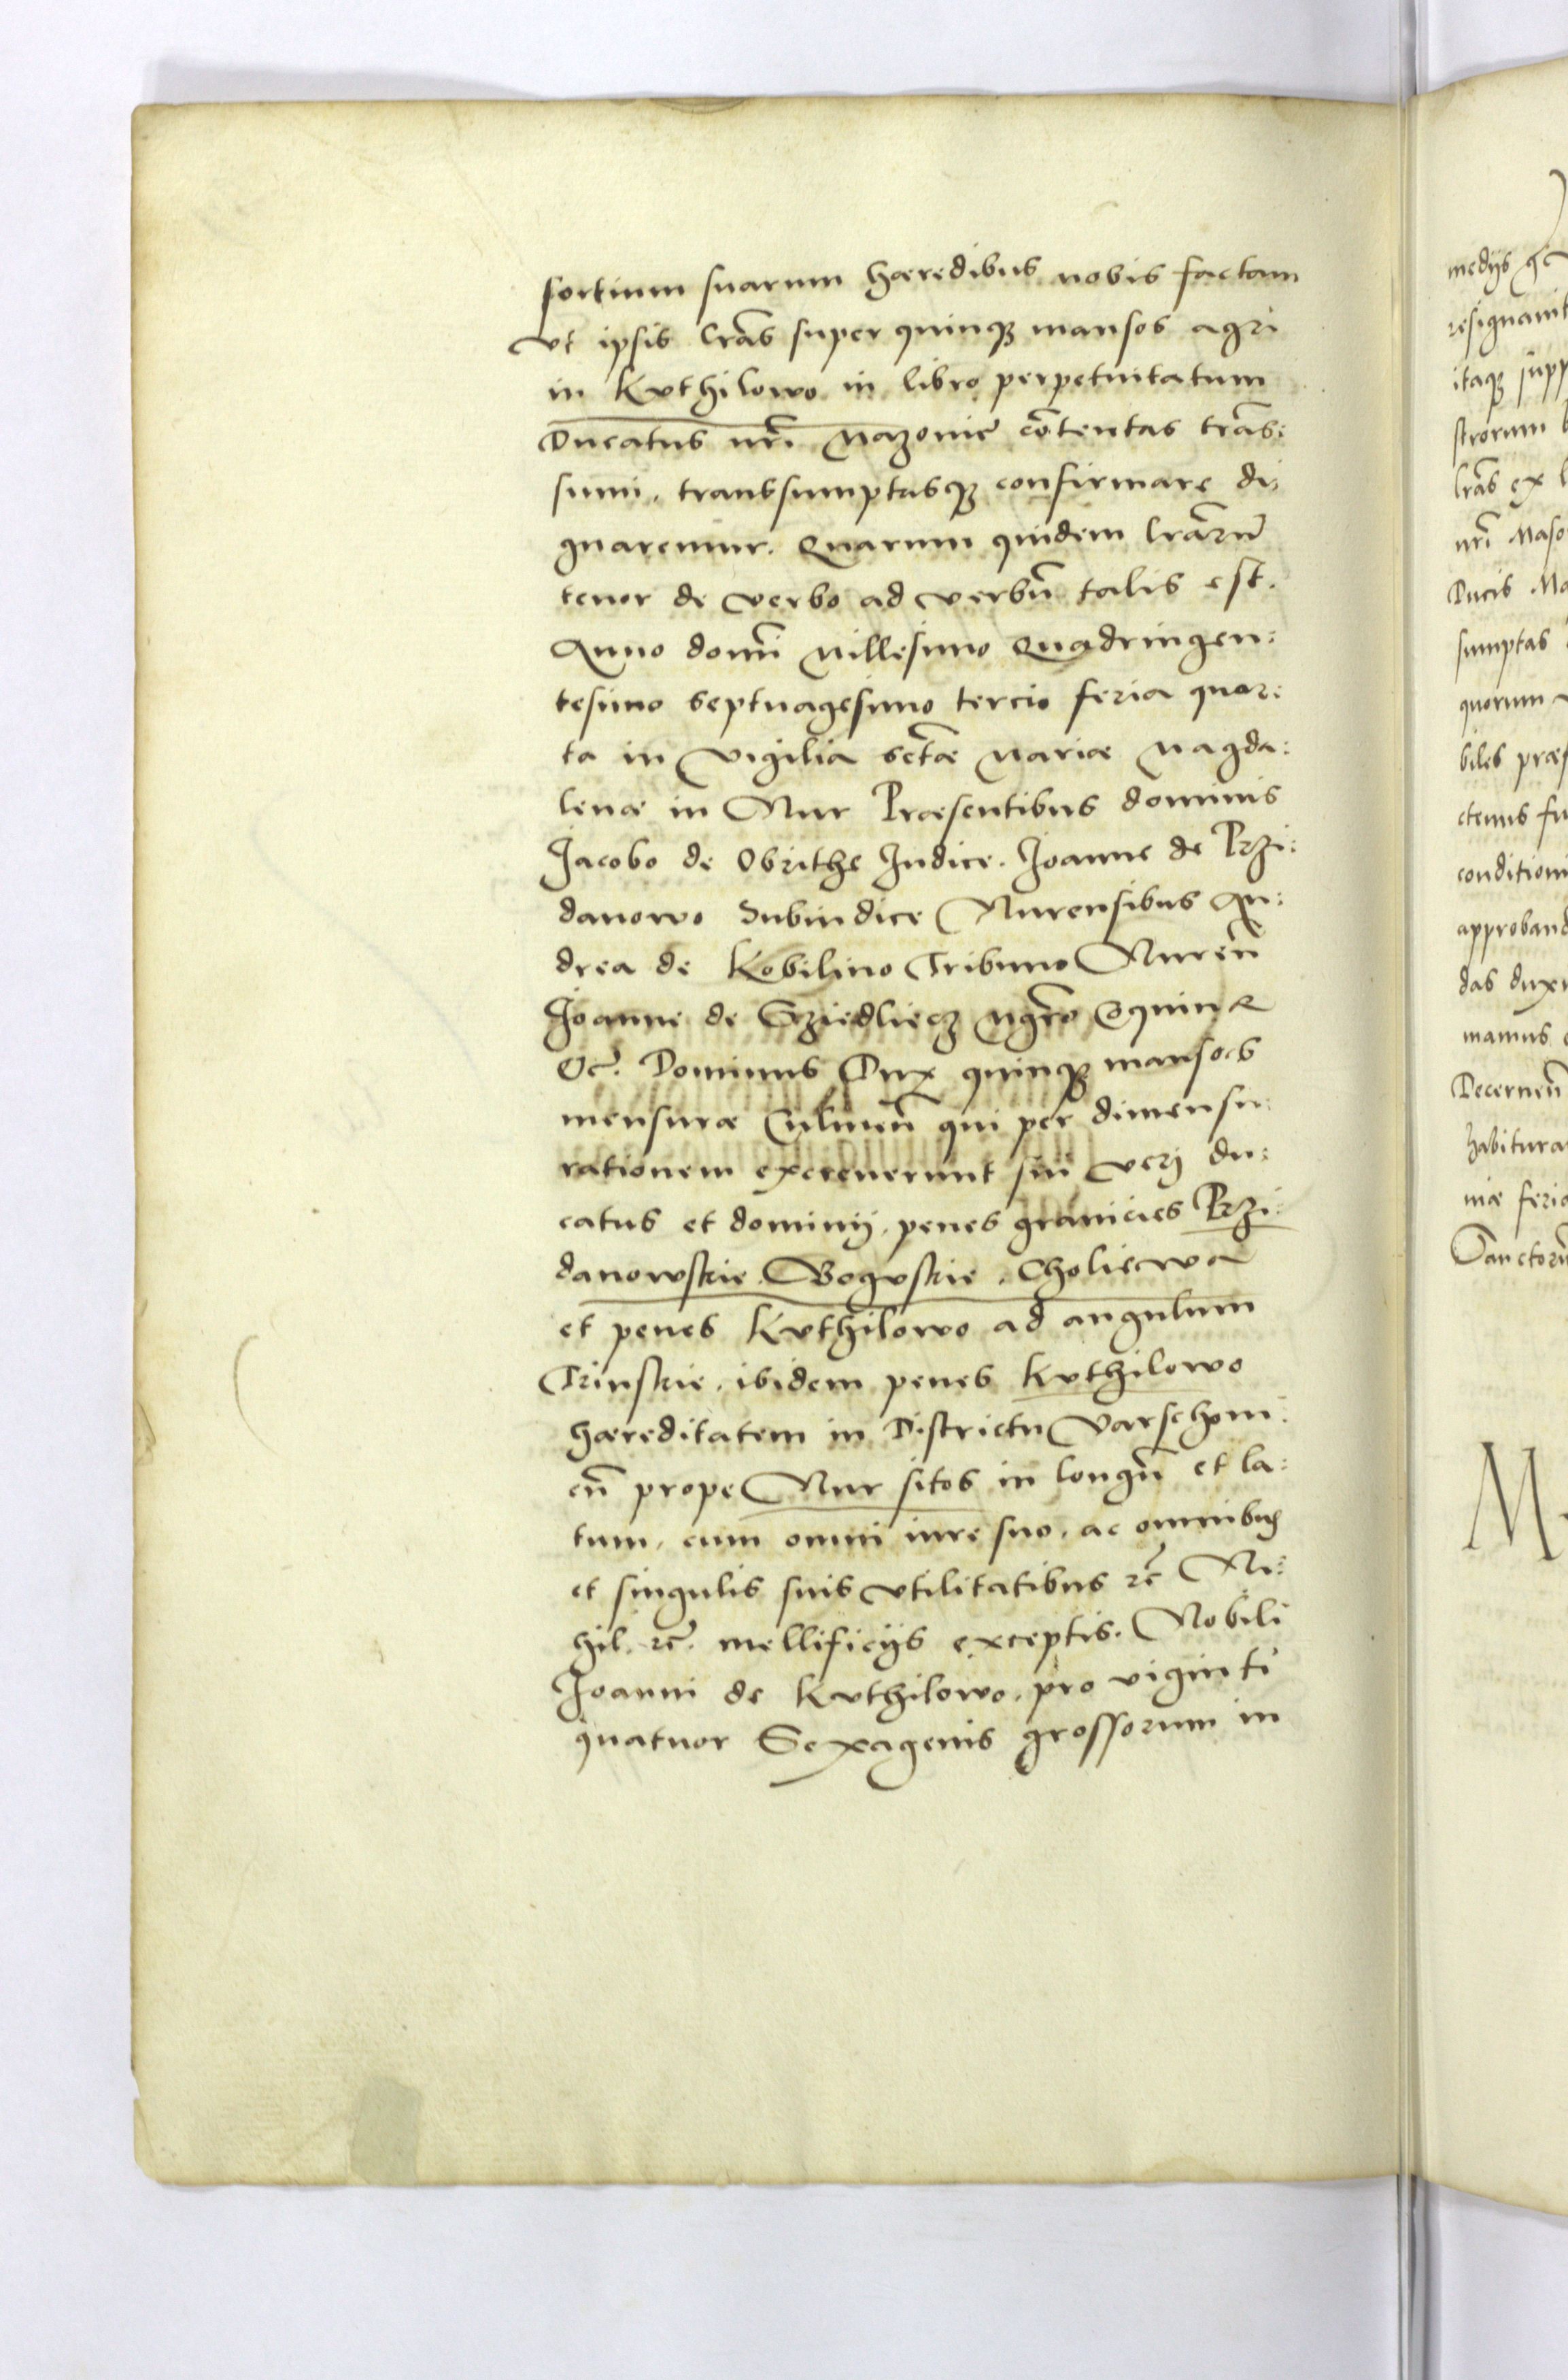 sortium suarum hæredibus nobis factam
vt ipsis lr̃as super quinq3 mansos agri
in Kuthilowo in libro perpetuitatum
Ducatus nr̃i Mazoniẽ cõtentas trãs:
sumi, transsumptasq3 confirmare di:
gnaremur. Quarum quidem lr̃arũ
tenor de verbo ad verbũ talis est.
Anno domĩ Millesimo Quadringen:
tesimo septuagesimo tercio feria quar:
ta in vigilia sctæ Mariæ Magda:
lenæ in Nur Præsentibus dominis
Jacobo de Obrithe Judice. Joanne de Przi:
danowo Subiudice Nurensibus An:
drea de Kobilino Tribuno Nureñ
Joanne de Srziedliecz mgr̃o Coquinæ
Etc̃. Dominus Dux quinq3 mansos
mensuræ Culmeñ qui per dimensu:
rationem excreuerunt sui veri du:
catus et dominij, penes granicies Przi:
danowskie. Boguskie. Choliewa
et penes Kuthilowo ad angulum
Trinskie. ibidem penes Kuthilowo
hæreditatem in Districtu Varschoui:
eñ prope Nur sitos in longũ et la:
tum, cum omni iure suo, ac omnibus
et singulis suis vtilitatibus etc̃ Ni:
hil. etc̃. mellificijs exceptis. Nobili
Joanni de Kuthilowo, pro viginti
quatuor Sexagenis grossorum in
medijs
resignauit
itaq3 supp
strorum
lr̃as ex
nr̃i Maso
Ducis Ma
sumptas
quorum
biles præf
ctenus fu
conditioni
approband
das duxi
mamus
Decerneñ
habitura
niæ feria
Sanctorũ
M